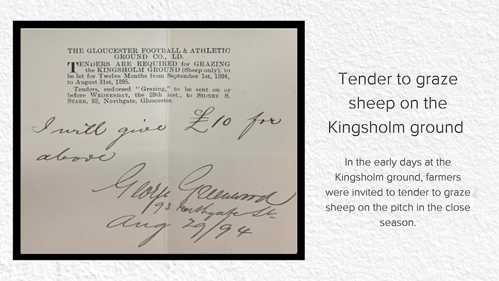 THE GLOUCESTER FOOTBALL & ATHLETIC
GROUND CO., LD.
TENDERS ARE REQUIRED for GRAZING
the KINGSHOLM GROUND (Sheep only), to
be let for Twelve Months from September 1st, 1894,
to August 31st, 1895.
Tenders, endorsed "Grazing," to be sent on or
before WEDNESDAY, the 29th inst., to SIDNEY S.
STARR, 92, Northgate, Gloucester.
I will give £10 for
above
George Greenwood
193 Northgate St
Aug 29/94
Tender to graze
sheep on the
Kingsholm ground
In the early days at the
Kingsholm ground, farmers
were invited to tender to graze
sheep on the pitch in the close
season.